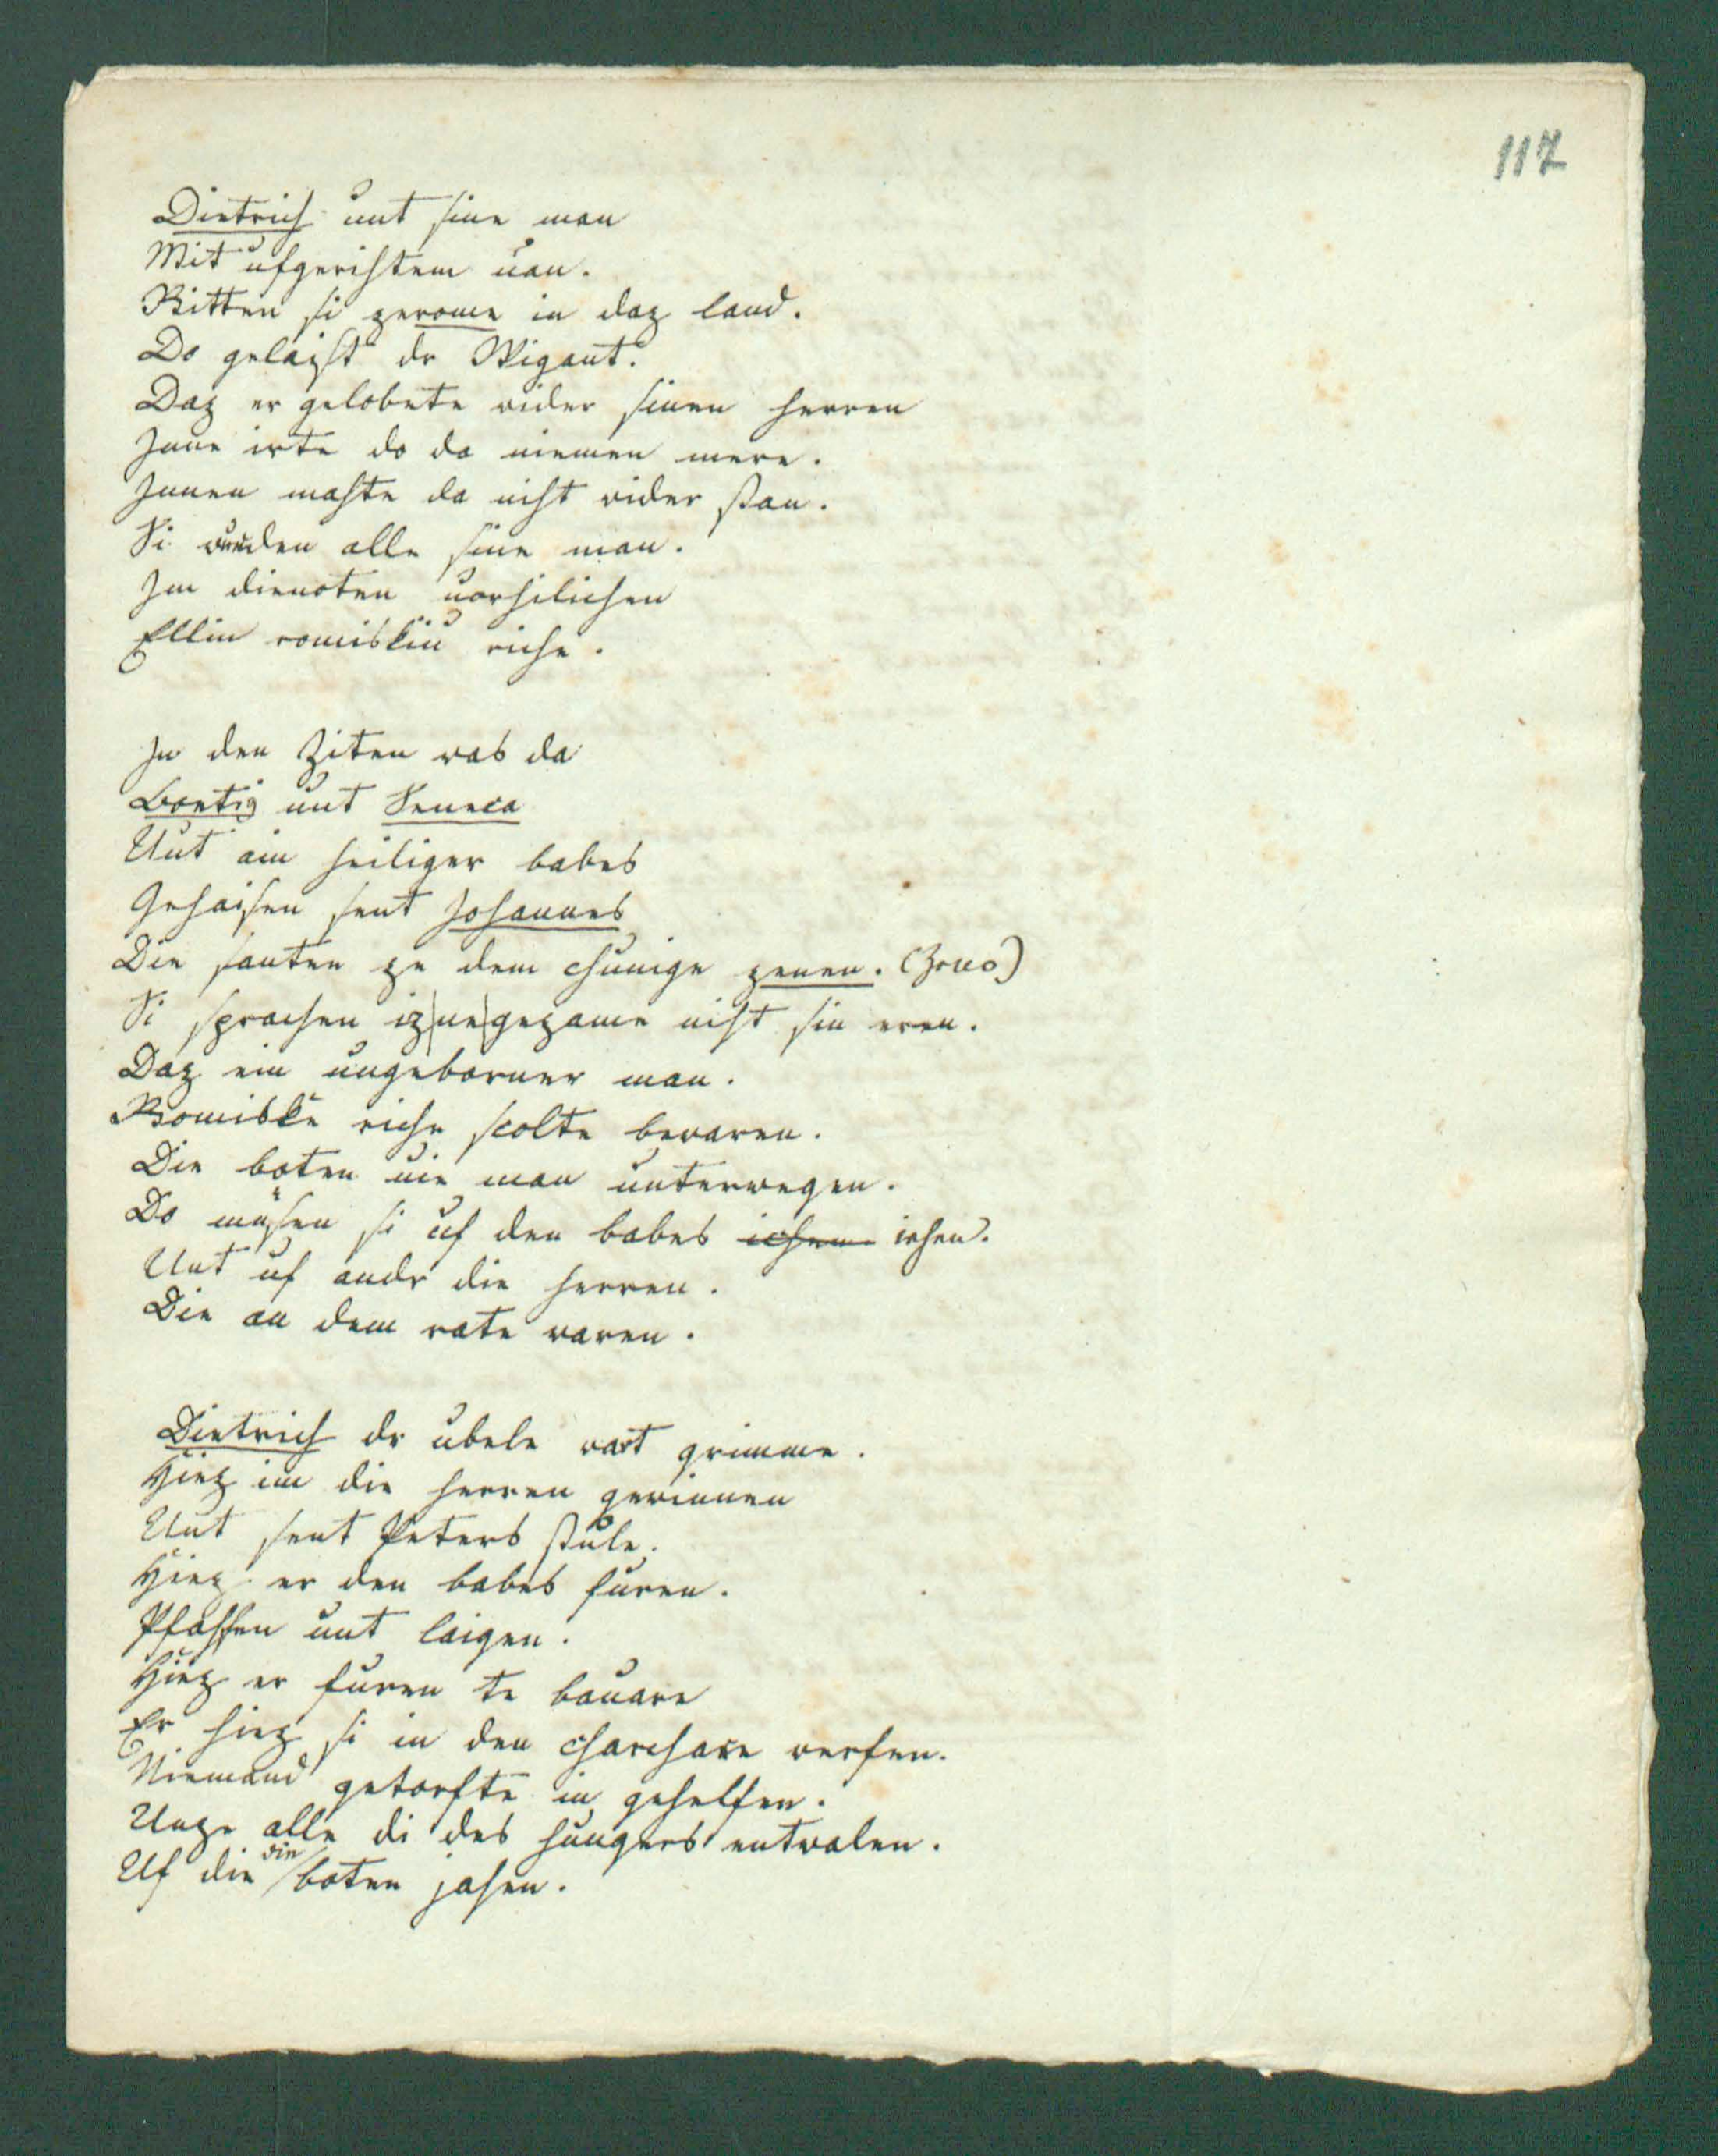 117
Dietrich unt sine man
Mit ufgerihtem uan.
Ritten si zerome in daz land.
Do gelaist dr Wigant.
Daz er gelobete wider sinen herren
Jane irte do da niemen mere.
Jnnen mahte da niht wider stan.
Si wurden alle sine man.
Jm dienoten vorhilichen
Elliu romiskiu riche.
Jn den Ziten was da
Boetig unt Seneca
Unt ain heiliger babes
Gehaisen sent Johannes
Die santen ze dem chunige zenen. (Zeno)
Si sprachen iz|ne|gezame niht sin eren.
Daz ein ungeborner man.
Romiske riche scolte bewaren.
Die boten uie man unterwegen.
Do musen si uf den babes iehen.
Unt uf andr die herren.
Die an dem rate waren.
Dietrich dr ubele wart grimme.
Hiez im die herren gewinnen
Unt sent Peters stule.
Hiez er den babes furen.
Pfaffen unt laigen.
Hiez er furen te bauare
Er hiez si in den charchare werfen.
Niemand getorfte in gehelfen.
Unze alle di des hungers entwalen.
Uf die die boten jahen.